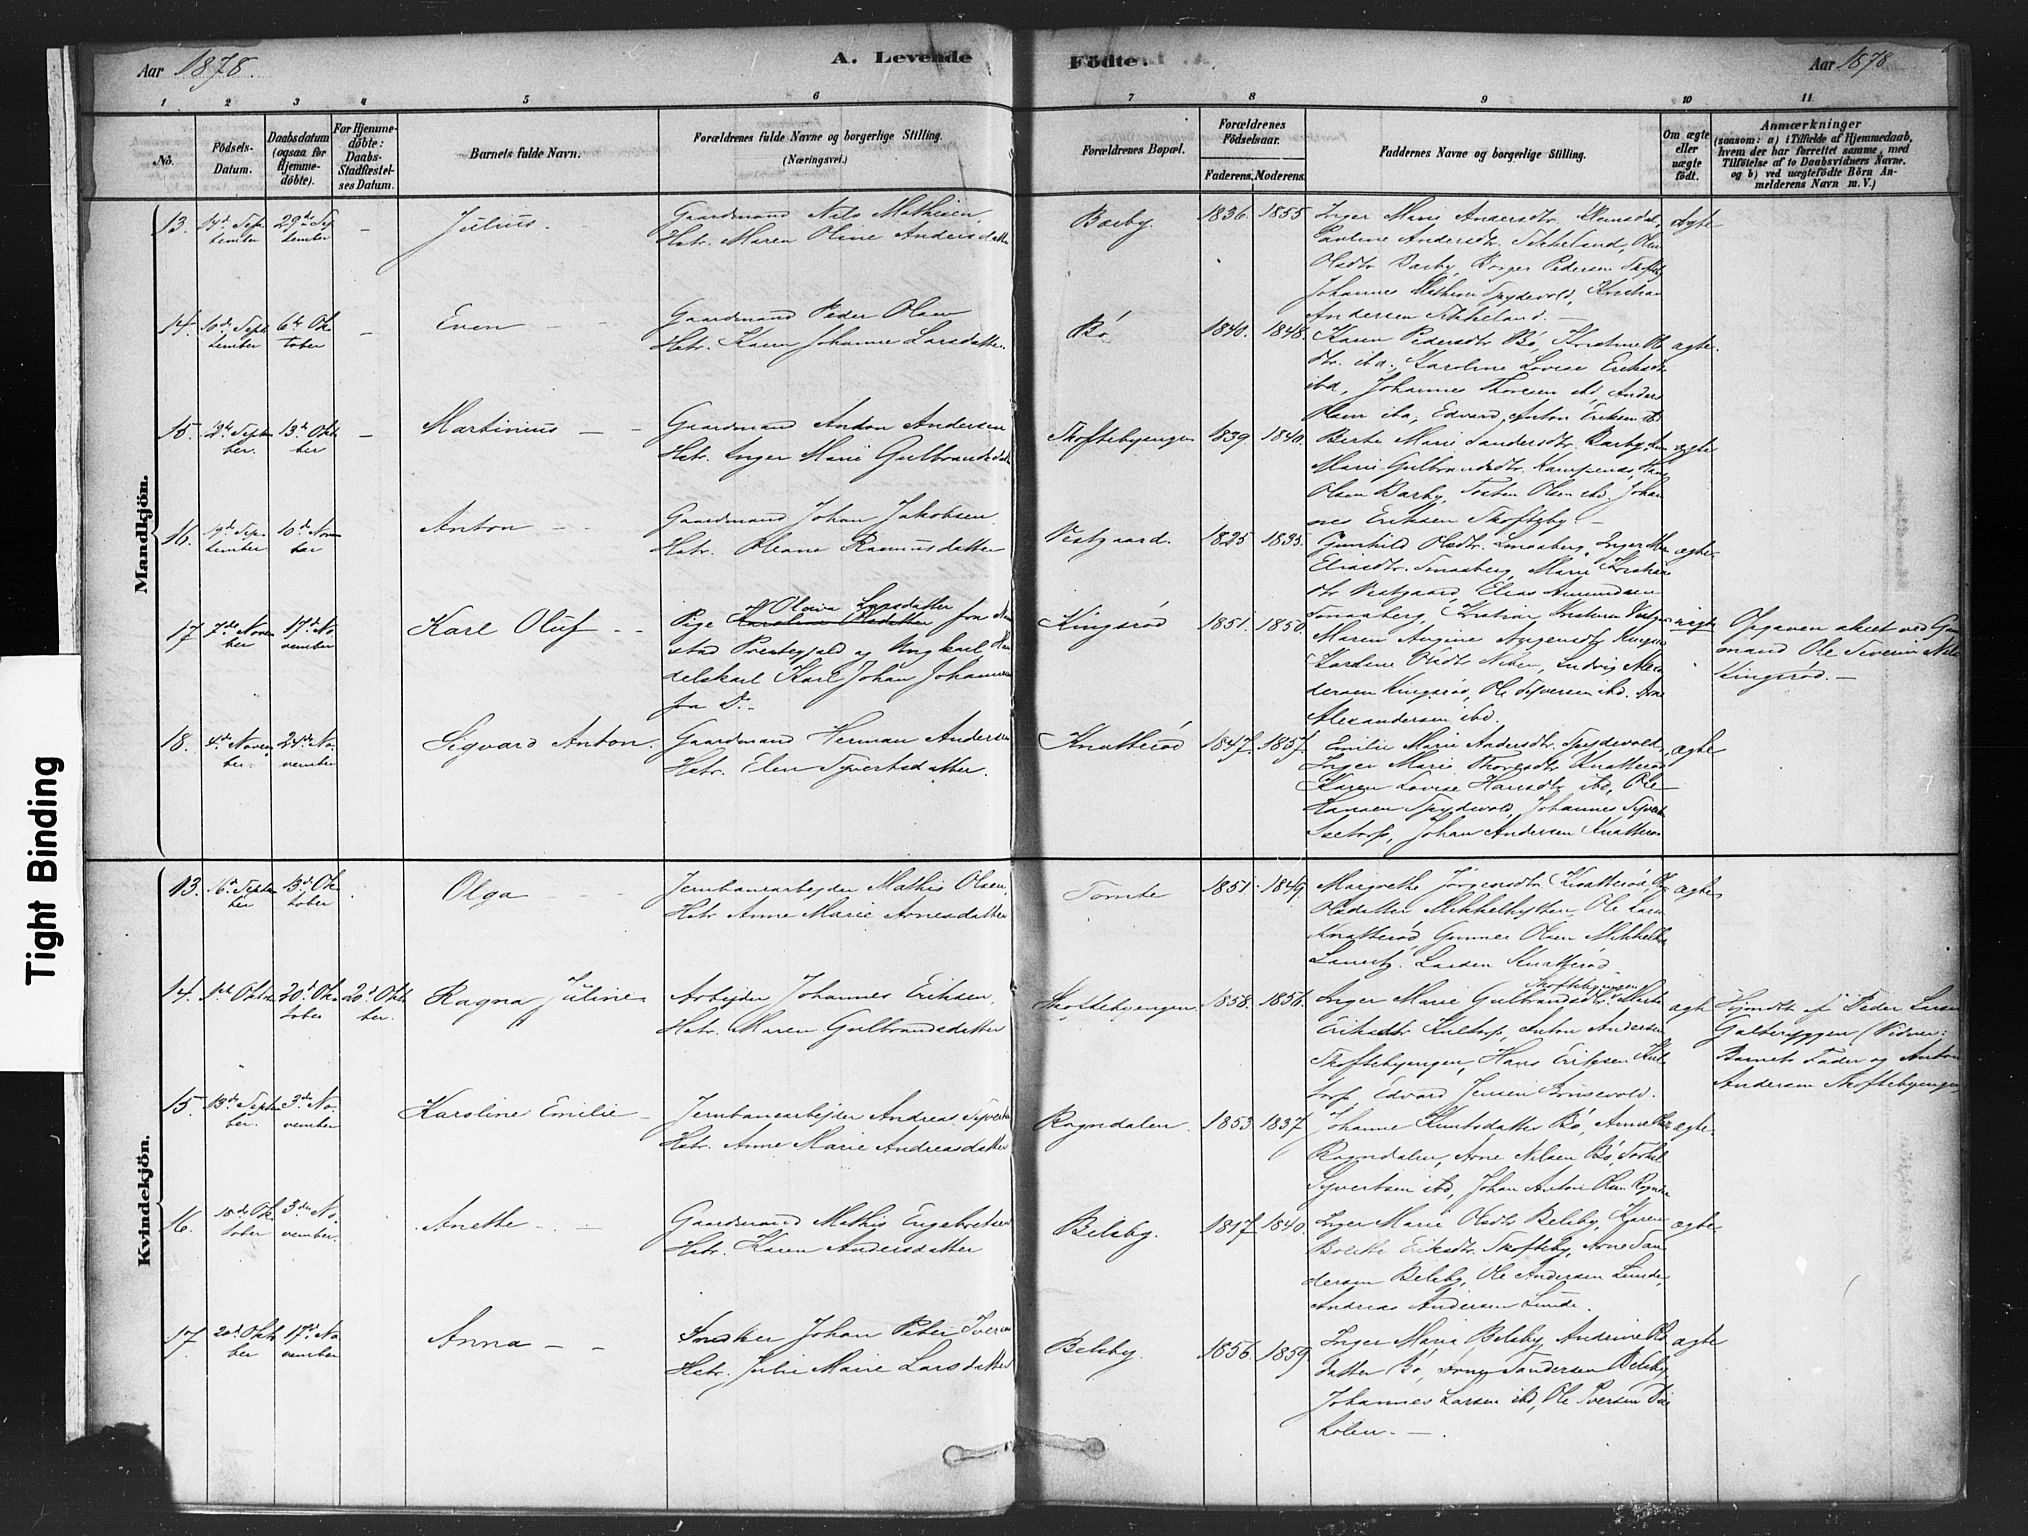 Aar 1878.
A. Levende Födte.
Aar 1878
1 2 3 4 5 6 7 8 9 10 11
No.
Födsels-Datum.
Daabsdatum (ogsaa for Hjemme-döbte).
For Hjemme-döbte: Daabs-Stadfæstel-ses Datum.
Barnets fulde Navn.
Forældrenes fulde Navne og borgerlige Stilling.
(Næringsvei.)
Forældrenes Bopæl.
Forældrenes Födselsaar.
Faderens. Moderens.
Faddernes Navne og borgerlige Stilling.
Om ægte eller uægte födt.
Anmærkninger
(saasom: a) i Tilfælde af Hjemmedaab,
hvem der har forrettet samme, med
Tilföielse af to Daabsvidners Navne.
og b) ved uægtefödte Börn An-
melderens Navn m. V.)
Mandkjön.
13. Sep-tember 29de Sep-tember - Julius. Gaardmand Nils Mathisen,
Hstr. Maren Oline Andersdatter
Basby. 1836. 1855 Inger Marie Andersdtr. ægte
Pauline Andersdtr. Tikkeland,
Olsdtr Basby, Borger Pedersen
Johannes Mathisen Spydevold, Kristian
Andersen Tikkeland. -
14. 10de Sep-tember 6te Ok-tober - Even - - Gaardmand Peder Olsen
Hstr. Karen Johanne Larsdatter.
Bö 1840. 1848. Karen Pedersdtr Bö, Kristine Ols ægte.
dtr. ibd., Karoline Lovise Eriksdtr
ibd, Johannes Thoresen ibd, Anders
Olsen ibd, Edvard Anton Eriksen ibd
15. Septem-ber. 13de Okto-ber - Martinius - - Gaardmand Anton Andersen
Hstr. Inger Marie Gulbrandsdatter
Skoftebyengen 1839. 1840. Berte Marie Sandersdtr. Basby, ægte
Marie Gulbrandsdtr. Kampenes, Hans
Olsen Basby, Torsten Olsen ibd. Johan
nes Eriksen Skofteby. -
16. 19de Sep-tember 10de Novem-ber Anton - - Gaardmand Johan Jakobsen
Hstr. Oleane Rasmusdatter
Vestgaard. 1825 1835. Gunhild Olsdtr. Smaaberg, Inger ægte.
Eliasdtr. Smaaberg, Marie Kristians
dtr Vestgaard, Elias Amundsen
Smaaberg, Kristian Kristensen Vestgaard
17 7de Novem-ber 17de No-vember Karl Oluf - - Pige Olava Larsdatter Karoline Olsdatter fra
stad Præstegjeld og Ungkarl Han
delskarl Karl Johan Johannesen
fra Do. -
Kingsröd 1851. 1850. Maren Augine uægte Opgaven skeet ved Gaard
mand Ole Severin Nils
Kingsröd. -
Karoline Olsdtr Ludvig Alexan
dersen Kingsröd, Ole Syversen ibd. Arne
Alexandersen ibd.
18. 4de Novem-ber 24de No-vember Sigvard Anton. Gaardmand Herman Andersen
Hstr. Elen Syvertsdatter.
Knatteröd 1847. 1857. Emilie Marie Andersdtr. Spydevold, ægte
Inger Marie Thoresdtr Knatteröd
Karen Lovise Hansdtr ibd, Ole
Hansen Spydevold, Johannes Syvert
Sætorp, Johan Andersen Knatteröd
Kvindekjön.
13. 16de Septem-ber 13de Ok-tober Olga - - Jernbanearbejder Mathis Olsen,
Hstr Anne Marie Arnesdatter
Tomte 1851. 1849. Margrethe Jörgensdtr Knatteröd, ægte
Olsdatter Mikkelhytten, Ole Lars
Knatteröd, Gunner Olsen Mikkel
Lauritz Larsen Knatteröd
14. 1ste Oktober 20de Ok-tober 20de Okto-ber. Ragna Juline Arbejder Johannes Eriksen,
Hstr. Maren Gulbrandsdatter
Skoftebyengen. 1858. 1856. Inger Marie Gulbrandsdtr. Skoftebyengen, Marte ægte
Eriksdtr Kultorp, Anton Andersen
Skoftebyengen, Hans Eriksen Kul
torp, Edvard Jensen Grönsvold.
Hjemdöbt af Peder Larsen
Galteryggen (Vidner:
Barnets Fader og Anton
Andersen Skoftebyengen
15. 13de Septem-ber. 3de No-vember Karoline Emilie - Jernbanearbejder Andreas Syvertsen
Hstr. Anne Marie Andreasdatter
Rogndalen. 1853. 1837 Johanne Knutsdatter Bö, ægte.
Rogndalen, Arne Nilsen Bö, Torkel
Syvertsen ibd, Johan Anton Olsen Rogndalen
16. Ok-tober 3de No-vember. Anette - - Gaardmand Mathis Engebretsen
Hstr. Karen Andersdatter
Belsby. 1817 1840. Inger Marie Olsdtr Belsby, Karen ægte
Bolette Eriksdtr. Skofteby, Arne San
dersen Belsby, Ole Andersen Lunde,
Andreas Andersen Lunde.
17 20de Okto-ber 17de No-vember Anna - - Snedker Johan Peter Iversen
Hstr. Julie Marie Larsdatter
Belsby 1856. 1859. Inger Maria Belsby, Andrine Ols ægte
datter Bö, Arne Sandersen Belsby,
Johannes Larsen ibd, Ole Iversen
-
Tight Binding